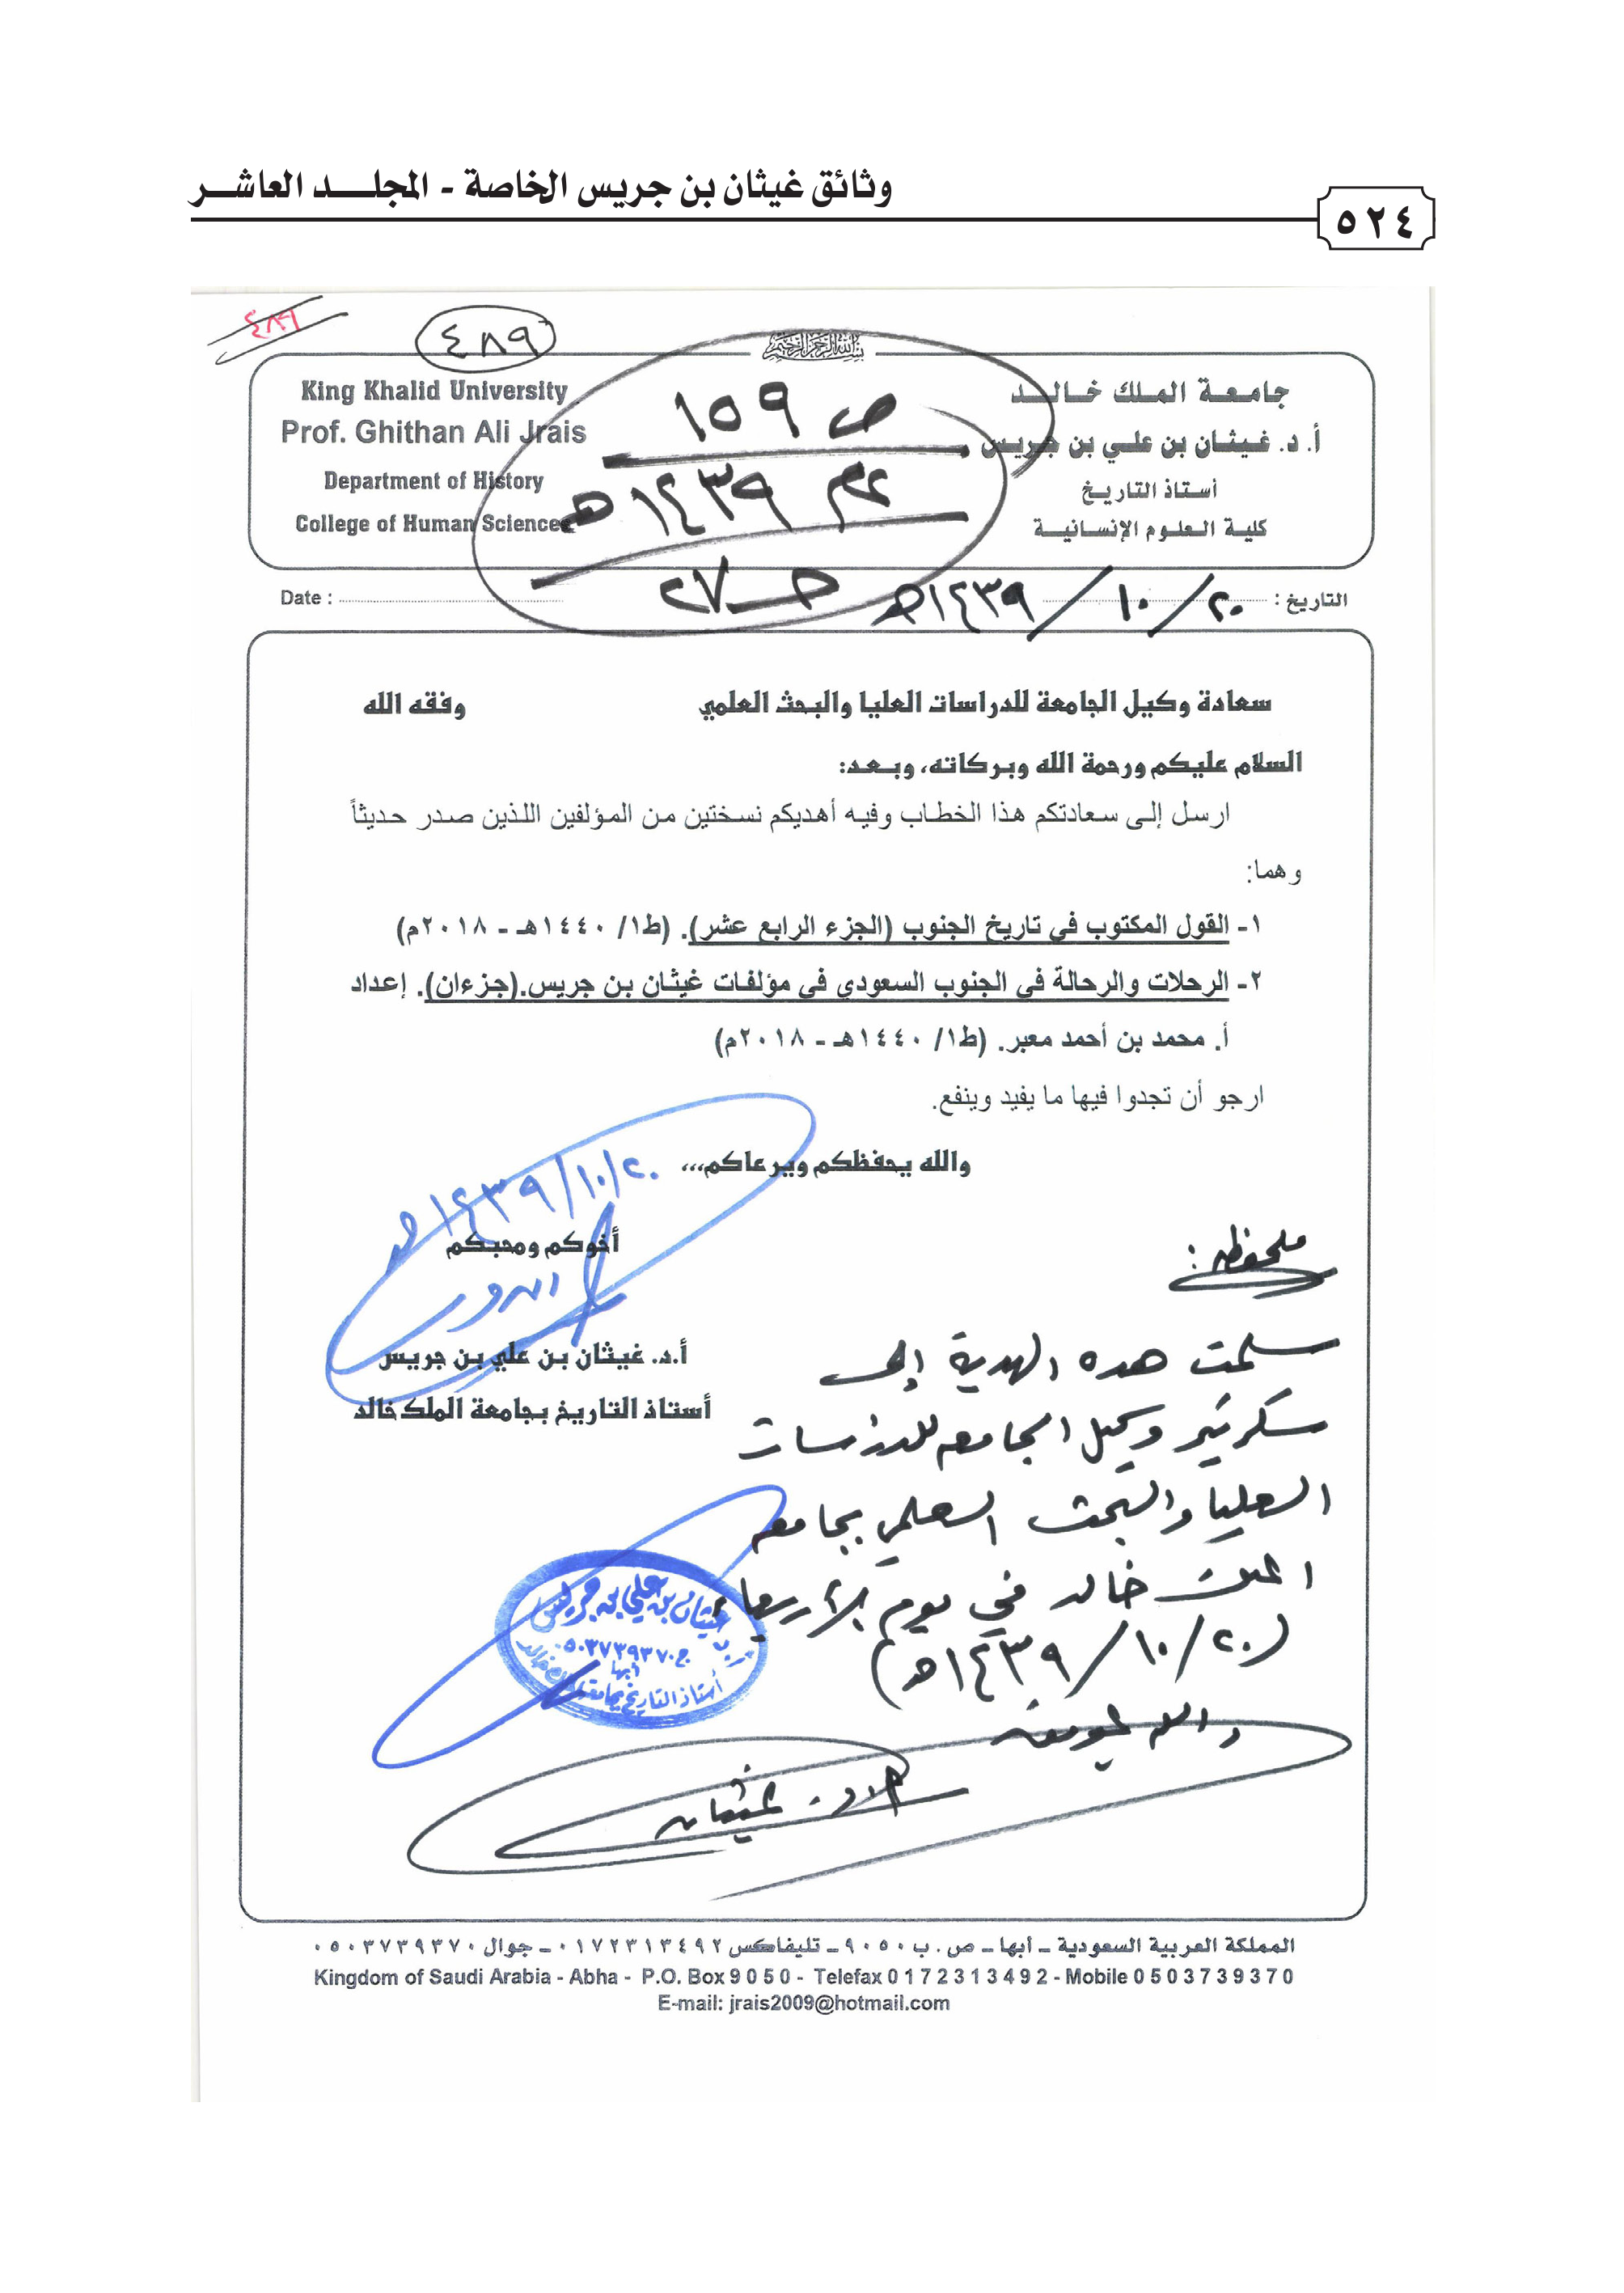 وثائق غيثان بن جريس الخاصة - المجلد العاشر
٥٢٤
٤٨٩
٤٨٩
بسم الله الرحمن الرحيم
جامعة الملك خالد
أ. د. غيثان بن علي بن جريس
أستاذ التاريخ
كلية العلوم الإنسانية
King Khalid University
Prof. Ghithan Ali Jrais
Department of History
College of Human Sciences
ص ١٥٩
عام ١٤٣٩هـ
حـ ٢٧
التاريخ : ٢٠ / ١٠ / ١٤٣٩هـ
Date :
سعادة وكيل الجامعة للدراسات العليا والبحث العلمي وفقه الله
السلام عليكم ورحمة الله وبركاته، وبعد:
ارسل إلى سعادتكم هذا الخطاب وفيه أهديكم نسختين من المؤلفين اللذين صدر حديثاً
وهما:
١- القول المكتوب في تاريخ الجنوب (الجزء الرابع عشر). (ط١/ ١٤٤٠هـ - ٢٠١٨م)
٢- الرحلات والرحالة في الجنوب السعودي في مؤلفات غيثان بن جريس.(جزءان). إعداد
أ. محمد بن أحمد معبر. (ط١/ ١٤٤٠هـ - ٢٠١٨م)
ارجو أن تجدوا فيها ما يفيد وينفع.
والله يحفظكم ويرعاكم،،،
٢٠/١٠/١٤٣٩هـ
أخوكم ومحبكم
أ.د. غيثان بن علي بن جريس
أستاذ التاريخ بجامعة الملك خالد
ملحوظه :
سلمت هذه الهدية إلى
سكرتير وكيل الجامعه للدراسات
العليا والبحث العلمي بجامعه
الملك خالد في يوم الأربعاء
(٢٠/١٠/١٤٣٩هـ)
والله الموفق
أ.د. غيثان
أ.د. غيثان بن علي بن جريس
ج ٠٥٠٣٧٣٩٣٧٠
أبها
أستاذ التاريخ بجامعة الملك خالد
المملكة العربية السعودية ـ أبها ـ ص . ب ٩٠٥٠ ـ تليفاكس ٠١٧٢٣١٣٤٩٢ ـ جوال ٠٥٠٣٧٣٩٣٧٠
Kingdom of Saudi Arabia - Abha - P.O. Box 9050 - Telefax 0172313492 - Mobile 0503739370
E-mail: jrais2009@hotmail.com